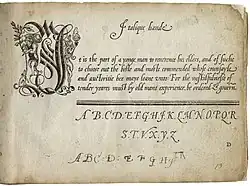 Italique hande
It is the part of a yonge man to reverence his elders, and of suche
to choose out the beste and moste commended whose counsayle
and auctoritie hee maye leane unto: For the unskilfulnesse of
tender yeares must by old mens experience, be ordered & governed.
A.B.C.D.E.F.G.H.I.K.L.M.N.O.P.Q.R
S.T.V.X.Y.Z
A B C D E F G H